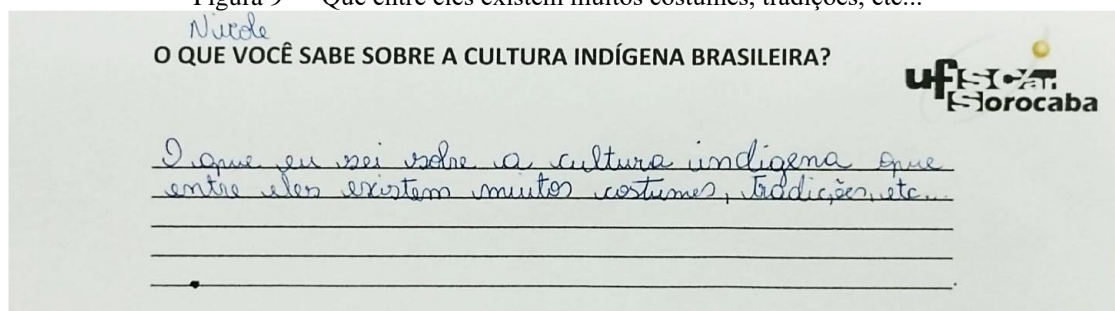 Figura 9 – "Que entre eles existem muitos costumes, tradições, etc..."
Nicole
O QUE VOCÊ SABE SOBRE A CULTURA INDÍGENA BRASILEIRA?
ufscar
Sorocaba
O que eu sei sobre a cultura indígena que
entre eles existem muitos costumes, tradições, etc...